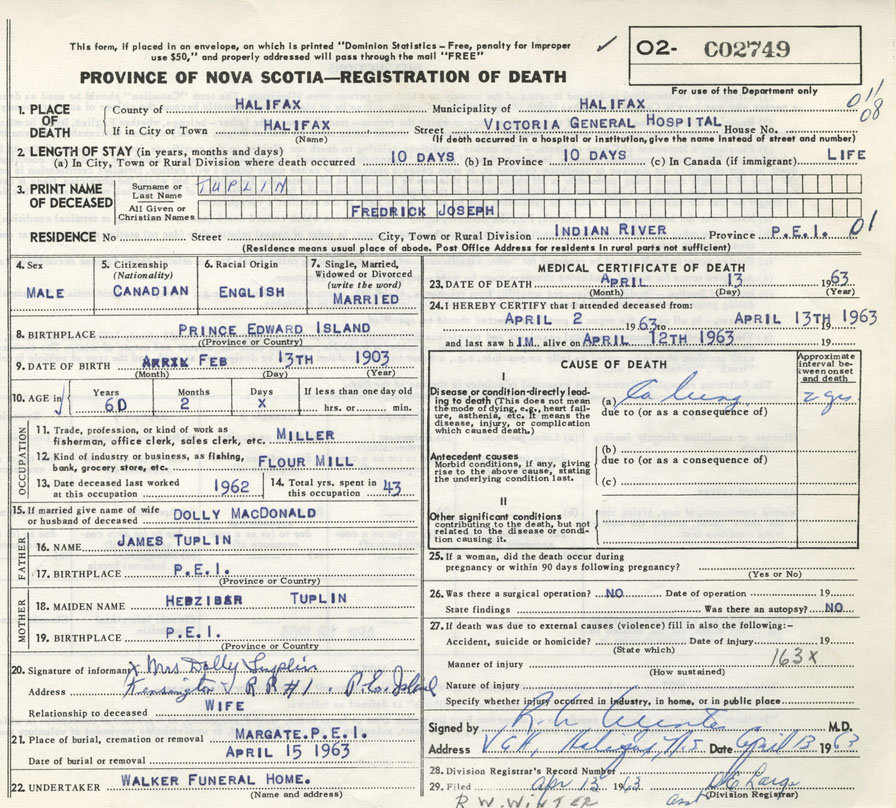 This form, if placed in an envelope, on which is printed "Dominion Statistics – Free, penalty for improper
use $50," and properly addressed will pass through the mail "FREE"
✓ 02- C02749
PROVINCE OF NOVA SCOTIA—REGISTRATION OF DEATH
For use of the Department only
011
08
1. PLACE OF DEATH County of HALIFAX Municipality of HALIFAX
If in City or Town HALIFAX Street VICTORIA GENERAL HOSPITAL House No.
(Name) (If death occurred in a hospital or institution, give the name instead of street and number)
2. LENGTH OF STAY (in years, months and days)
(a) In City, Town or Rural Division where death occurred 10 DAYS (b) In Province 10 DAYS (c) In Canada (if immigrant) LIFE
3. PRINT NAME OF DECEASED Surname or Last Name TUPLIN
All Given or Christian Names FREDRICK JOSEPH
RESIDENCE No Street City, Town or Rural Division INDIAN RIVER Province P.E.I. 01
(Residence means usual place of abode. Post Office Address for residents in rural parts not sufficient)
4. Sex MALE
5. Citizenship (Nationality) CANADIAN
6. Racial Origin ENGLISH
7. Single, Married, Widowed or Divorced (write the word) MARRIED
8. BIRTHPLACE PRINCE EDWARD ISLAND
((Province or Country)
9. DATE OF BIRTH FEB 13TH 1903
(Month) (Day) (Year)
10. AGE in Years 60 Months 2 Days X If less than one day old
hrs. or min.
OCCUPATION
11. Trade, profession, or kind of work as
fisherman, office clerk, sales clerk, etc. MILLER
12. Kind of industry or business, as fishing,
bank, grocery store, etc. FLOUR MILL
13. Date deceased last worked at this occupation 1962
14. Total yrs. spent in this occupation 43
15. If married give name of wife
or husband of deceased DOLLY MACDONALD
FATHER
16. NAME JAMES TUPLIN
17. BIRTHPLACE P.E.I.
(Province or Country)
MOTHER
18. MAIDEN NAME HEPZIBAR TUPLIN
19. BIRTHPLACE P.E.I.
(Province or Country
20. Signature of informant x Mrs Dolly Tuplin
Address Kensington RR#1. P.E. Island
Relationship to deceased WIFE
21. Place of burial, cremation or removal MARGATE.P.E.I.
Date of burial or removal APRIL 15 1963
22. UNDERTAKER WALKER FUNERAL HOME.
(Name and address)
MEDICAL CERTIFICATE OF DEATH
23. DATE OF DEATH APRIL 13 1963
(Month) (Day) (Year)
24. I HEREBY CERTIFY that I attended deceased from:
APRIL 2 1963 to APRIL 13TH 1963 19
and last saw h IM. alive on APRIL 12TH 1963 19
CAUSE OF DEATH
Approximate interval between onset and death
I
Disease or condition directly leading to death (This does not mean the mode of dying, e.g., heart failure, asthenia, etc. It means the disease, injury, or complication which caused death.)
(a) Ca lung 2 yrs
due to (or as a consequence of)
Antecedent causes
Morbid conditions, if any, giving rise to the above cause, stating the underlying condition last.
(b)
due to (or as a consequence of)
(c)
II
Other significant conditions
contributing to the death, but not related to the disease or condition causing it.
25. If a woman, did the death occur during
pregnancy or within 90 days following pregnancy?
(Yes or No)
26. Was there a surgical operation? NO Date of operation 19
State findings Was there an autopsy? NO
27. If death was due to external causes (violence) fill in also the following:–
Accident, suicide or homicide? Date of injury 19
(State which)
Manner of injury 163X
(How sustained)
Nature of injury
Specify whether injury occurred in industry, in home, or in public place
Signed by M.D.
Address V G H, Halifax, N.S. Date April 13 1963
28. Division Registrar's Record Number
29. Filed Apr 13 1963
(Division Registrar)
R.W. WINTER